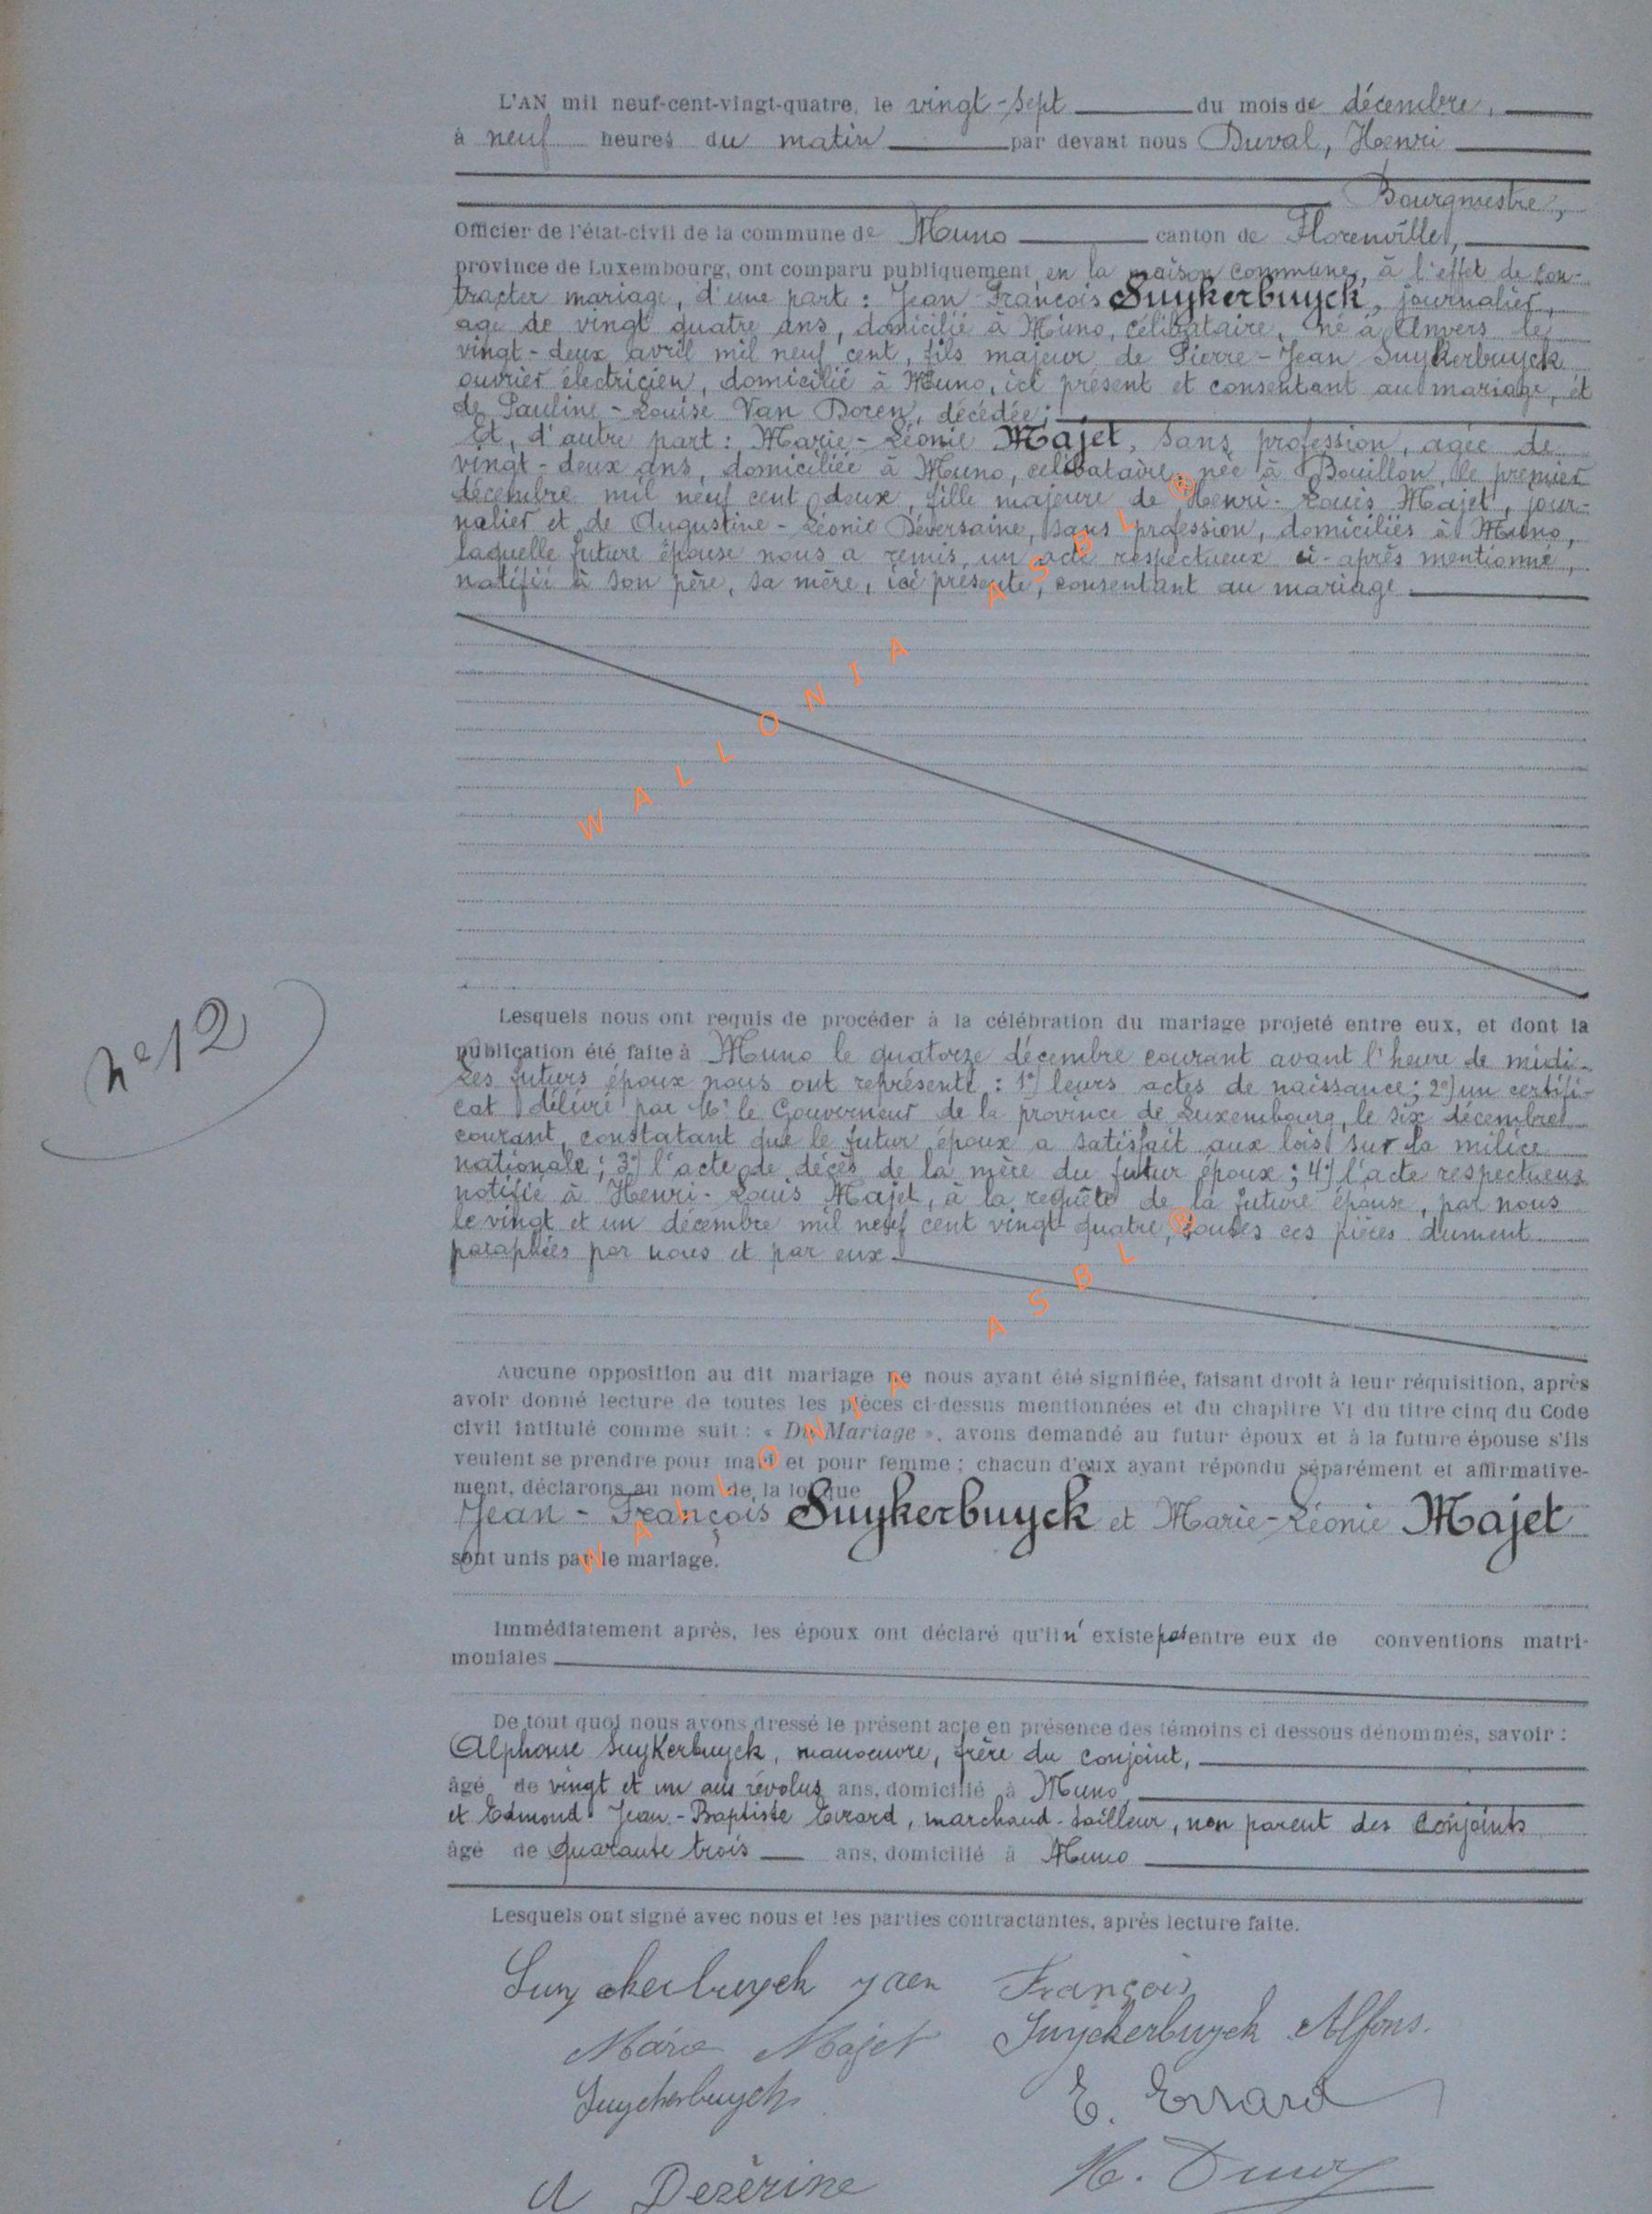 L'AN mil neuf-cent-vingt-quatre, le vingt-sept du mois de décembre,
à neuf heures du matin par devant nous Duval, Henri
Bourgmestre,
Officier de l'état-civil de la commune de Muno canton de Florenville,
province de Luxembourg, ont comparu publiquement en la maison commune, à l'effet de con-
tracter mariage, d'une part : Jean-François Suykerbuyck, journalier,
agé de vingt quatre ans, domicilié à Muno, célibataire, né à Anvers le
vingt-deux avril mil neuf cent, fils majeur de Pierre-Jean Suykerbuyck
ouvrier électricien, domicilié à Muno, ici présent et consentant au mariage, et
de Pauline-Louise Van Doren, décédée ;
Et, d'autre part : Marie-Léonie Majet, sans profession, agée de
vingt-deux ans, domiciliée à Muno, célibataire, née à Bouillon, le premier
décembre mil neuf cent deux, fille majeure de Henri-Louis Majet, jour-
nalier et de Augustine-Léonie Deversaine, sans profession, domiciliés à Muno,
laquelle future épouse nous a remis un acte respectueux ci-après mentionné,
notifié à son père, sa mère, ici présente, consentant au mariage
WALLONIA ASBL ®
n° 12
Lesquels nous ont requis de procéder à la célébration du mariage projeté entre eux, et dont la
publication été faite à Muno le quatorze décembre courant avant l'heure de midi.
Les futurs époux nous ont représenté : 1°) leurs actes de naissance ; 2°) un certifi-
cat délivré par Mr le Gouverneur de la province de Luxembourg, le six décembre
courant, constatant que le futur époux a satisfait aux lois sur la milice
nationale ; 3°) l'acte de décès de la mère du futur époux ; 4°) l'acte respectueux
notifié à Henri-Louis Majet, à la requête de la future épouse, par nous
le vingt et un décembre mil neuf cent vingt quatre, toutes ces pièces dument
paraphées par nous et par eux
WALLONIA ASBL ®
Aucune opposition au dit mariage ne nous ayant été signifiée, faisant droit à leur réquisition, après
avoir donné lecture de toutes les pièces ci-dessus mentionnées et du chapitre VI du titre cinq du Code
civil intitulé comme suit : « Du Mariage », avons demandé au futur époux et à la future épouse s'ils
veulent se prendre pour mari et pour femme ; chacun d'eux ayant répondu séparément et affirmative-
ment, déclarons au nom de la loi que
Jean-François Suykerbuyck et Marie-Léonie Majet
sont unis par le mariage.
Immédiatement après, les époux ont déclaré qu'il n'existe pas entre eux de conventions matri-
moniales
De tout quoi nous avons dressé le présent acte en présence des témoins ci dessous dénommés, savoir :
Alphonse Suykerbuyck, manoeuvre, frère du conjoint,
âgé de vingt et un ans révolus ans, domicilié à Muno,
et Edmond Jean-Baptiste Evrard, marchand-tailleur, non parent des conjoints
âgé de quarante trois ans, domicilié à Muno
Lesquels ont signé avec nous et les parties contractantes, après lecture faite.
Suyckerbuyck Jaen François
Marie Majet Suyckerbuyck Alfons.
Suyckerbuyck E. Evrard
A Dezèrine H. Duval